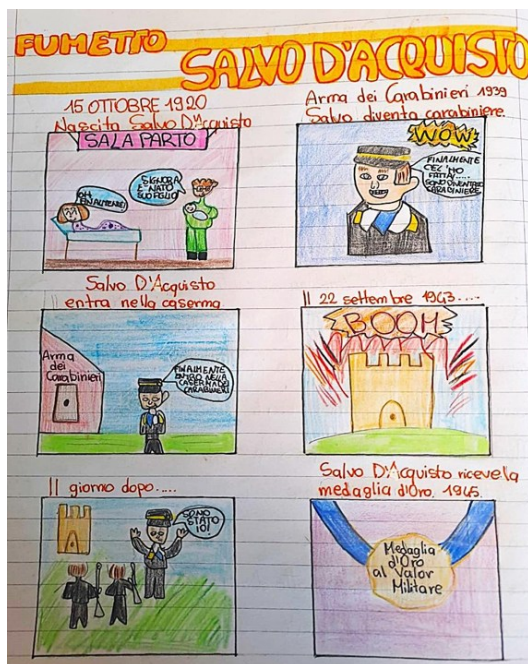 FUMETTO
SALVO D'ACQUISTO
15 OTTOBRE 1920
Nascita Salvo D'Acquisto
SALA PARTO
OH
FINALMENTE!
SIGNORA
È NATO
SUO FIGLIO
Arma dei Carabinieri 1939
Salvo diventa carabiniere.
WOW
FINALMENTE
CEL'HO
FATTA!....
SONO DIVENTATO
CARABINIERE
Salvo D'Acquisto
entra nella caserma
Arma
dei
Carabinieri
FINALMENTE
ENTRO NELLA
CASERMA DEI
CARABINIERI
Il 22 settembre 1943....
BOOM
Il giorno dopo....
SONO
STATO
IO!
Salvo D'Acquisto riceve la
medaglia d'Oro. 1945.
Medaglia
d'Oro
al Valor
Militare